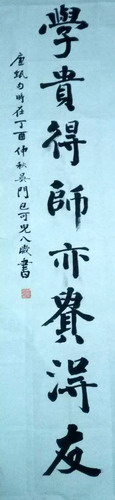 學貴得師亦貴得友
唐甄句時在丁酉仲秋吳門包可兒八歲書